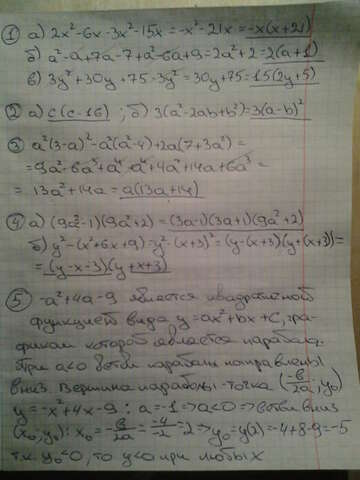 ① а) 2x²-6x-3x²-15x=-x²-21x=-x(x+21)
б) a²-a+7a-7+a²-6a+9=2a²+2=2(a+1)
в) 3y²+30y+75-3y²=30y+75=15(2y+5)
② а) c(c-16) ; б) 3(a²-2ab+b²)=3(a-b)²
③ a²(3-a)²-a²(a²-4)+2a(7+3a²)=
=9a²-6a³+a⁴-a⁴+4a²+14a+6a³=
= 13a²+14a=a(13a+14)
④ а) (9a²-1)(9a²+2)=(3a-1)(3a+1)(9a²+2)
б) y²-(x²+6x+9)=y²-(x+3)²=(y-(x+3)(y+(x+3))=
=(y-x-3)(y+x+3)
⑤ -a²+4a-9 является квадратичной
функцией вида y=ax²+bx+c, гра-
фиком которой является парабола.
При a<0 ветви параболы направлены
вниз. Вершина параболы-точка (-b/2a; y₀)
y=-x²+4x-9 : a=-1=>a<0=>ветви вниз
(x₀; y₀): x₀=-b/2a=-4/-2=2=>y₀=y(2)=-4+8-9=-5
т.к. y₀<0, то y<0 при любых x